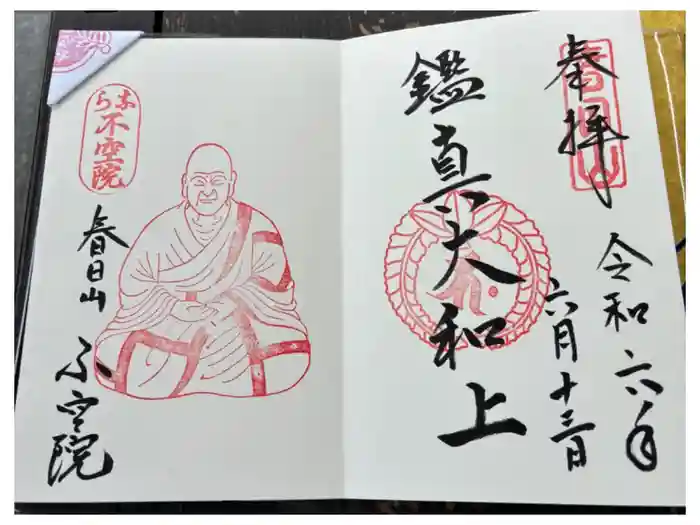 奉拝
春日山
令和六年
六月十三日
鑑真大和上
なら
不空院
春日山
不空院